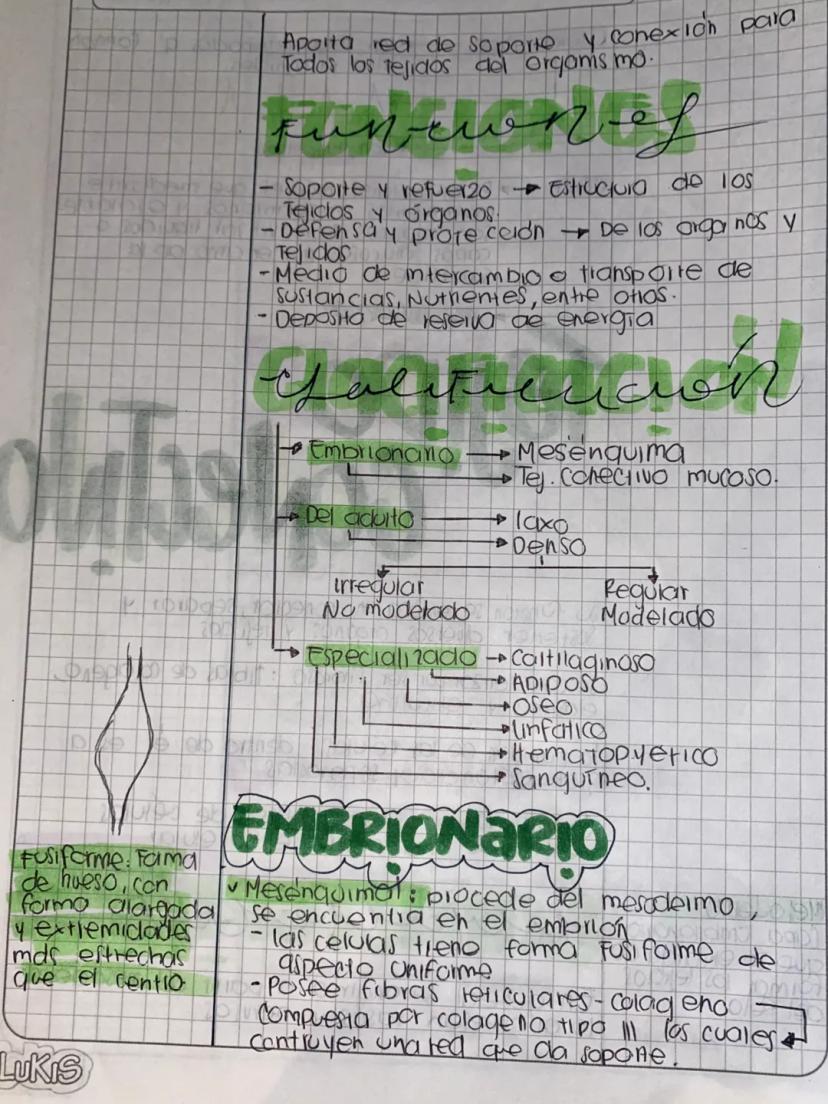 Aporta red de soporte y conexión para
Todos los tejidos del organismo.
Funciones
- Soporte y refuerzo → Estructura de los
Tejidos y órganos.
- Defensa y protección → De los organos y
Tejidos
- Medio de intercambio o transporte de
sustancias, Nutrientes, entre otros.
- Deposito de reserva de energía
Clasificación
→ Embrionario → Mesénquima
→ Tej. conectivo mucoso.
→ Del adulto → laxo
→ Denso
Irregular Regular
No modelado Modelado
→ Especializado → Cartilaginoso
→ Adiposo
→ Oseo
→ linfatico
→ Hematopyetico
→ Sanguíneo.
EMBRIONARIO
Fusiforme: Forma
de hueso, con
forma alargada
y extremidades
mds estrechas
que el centro.
✓ Mesénquimal: procede del mesodermo,
se encuentra en el embrión
- las celulas tieno forma Fusiforme de
aspecto uniforme
- Posee fibras reticulares - colageno
compuesta por colageno tipo III los cuales
contruyen una red que da soporte.
LUKIS